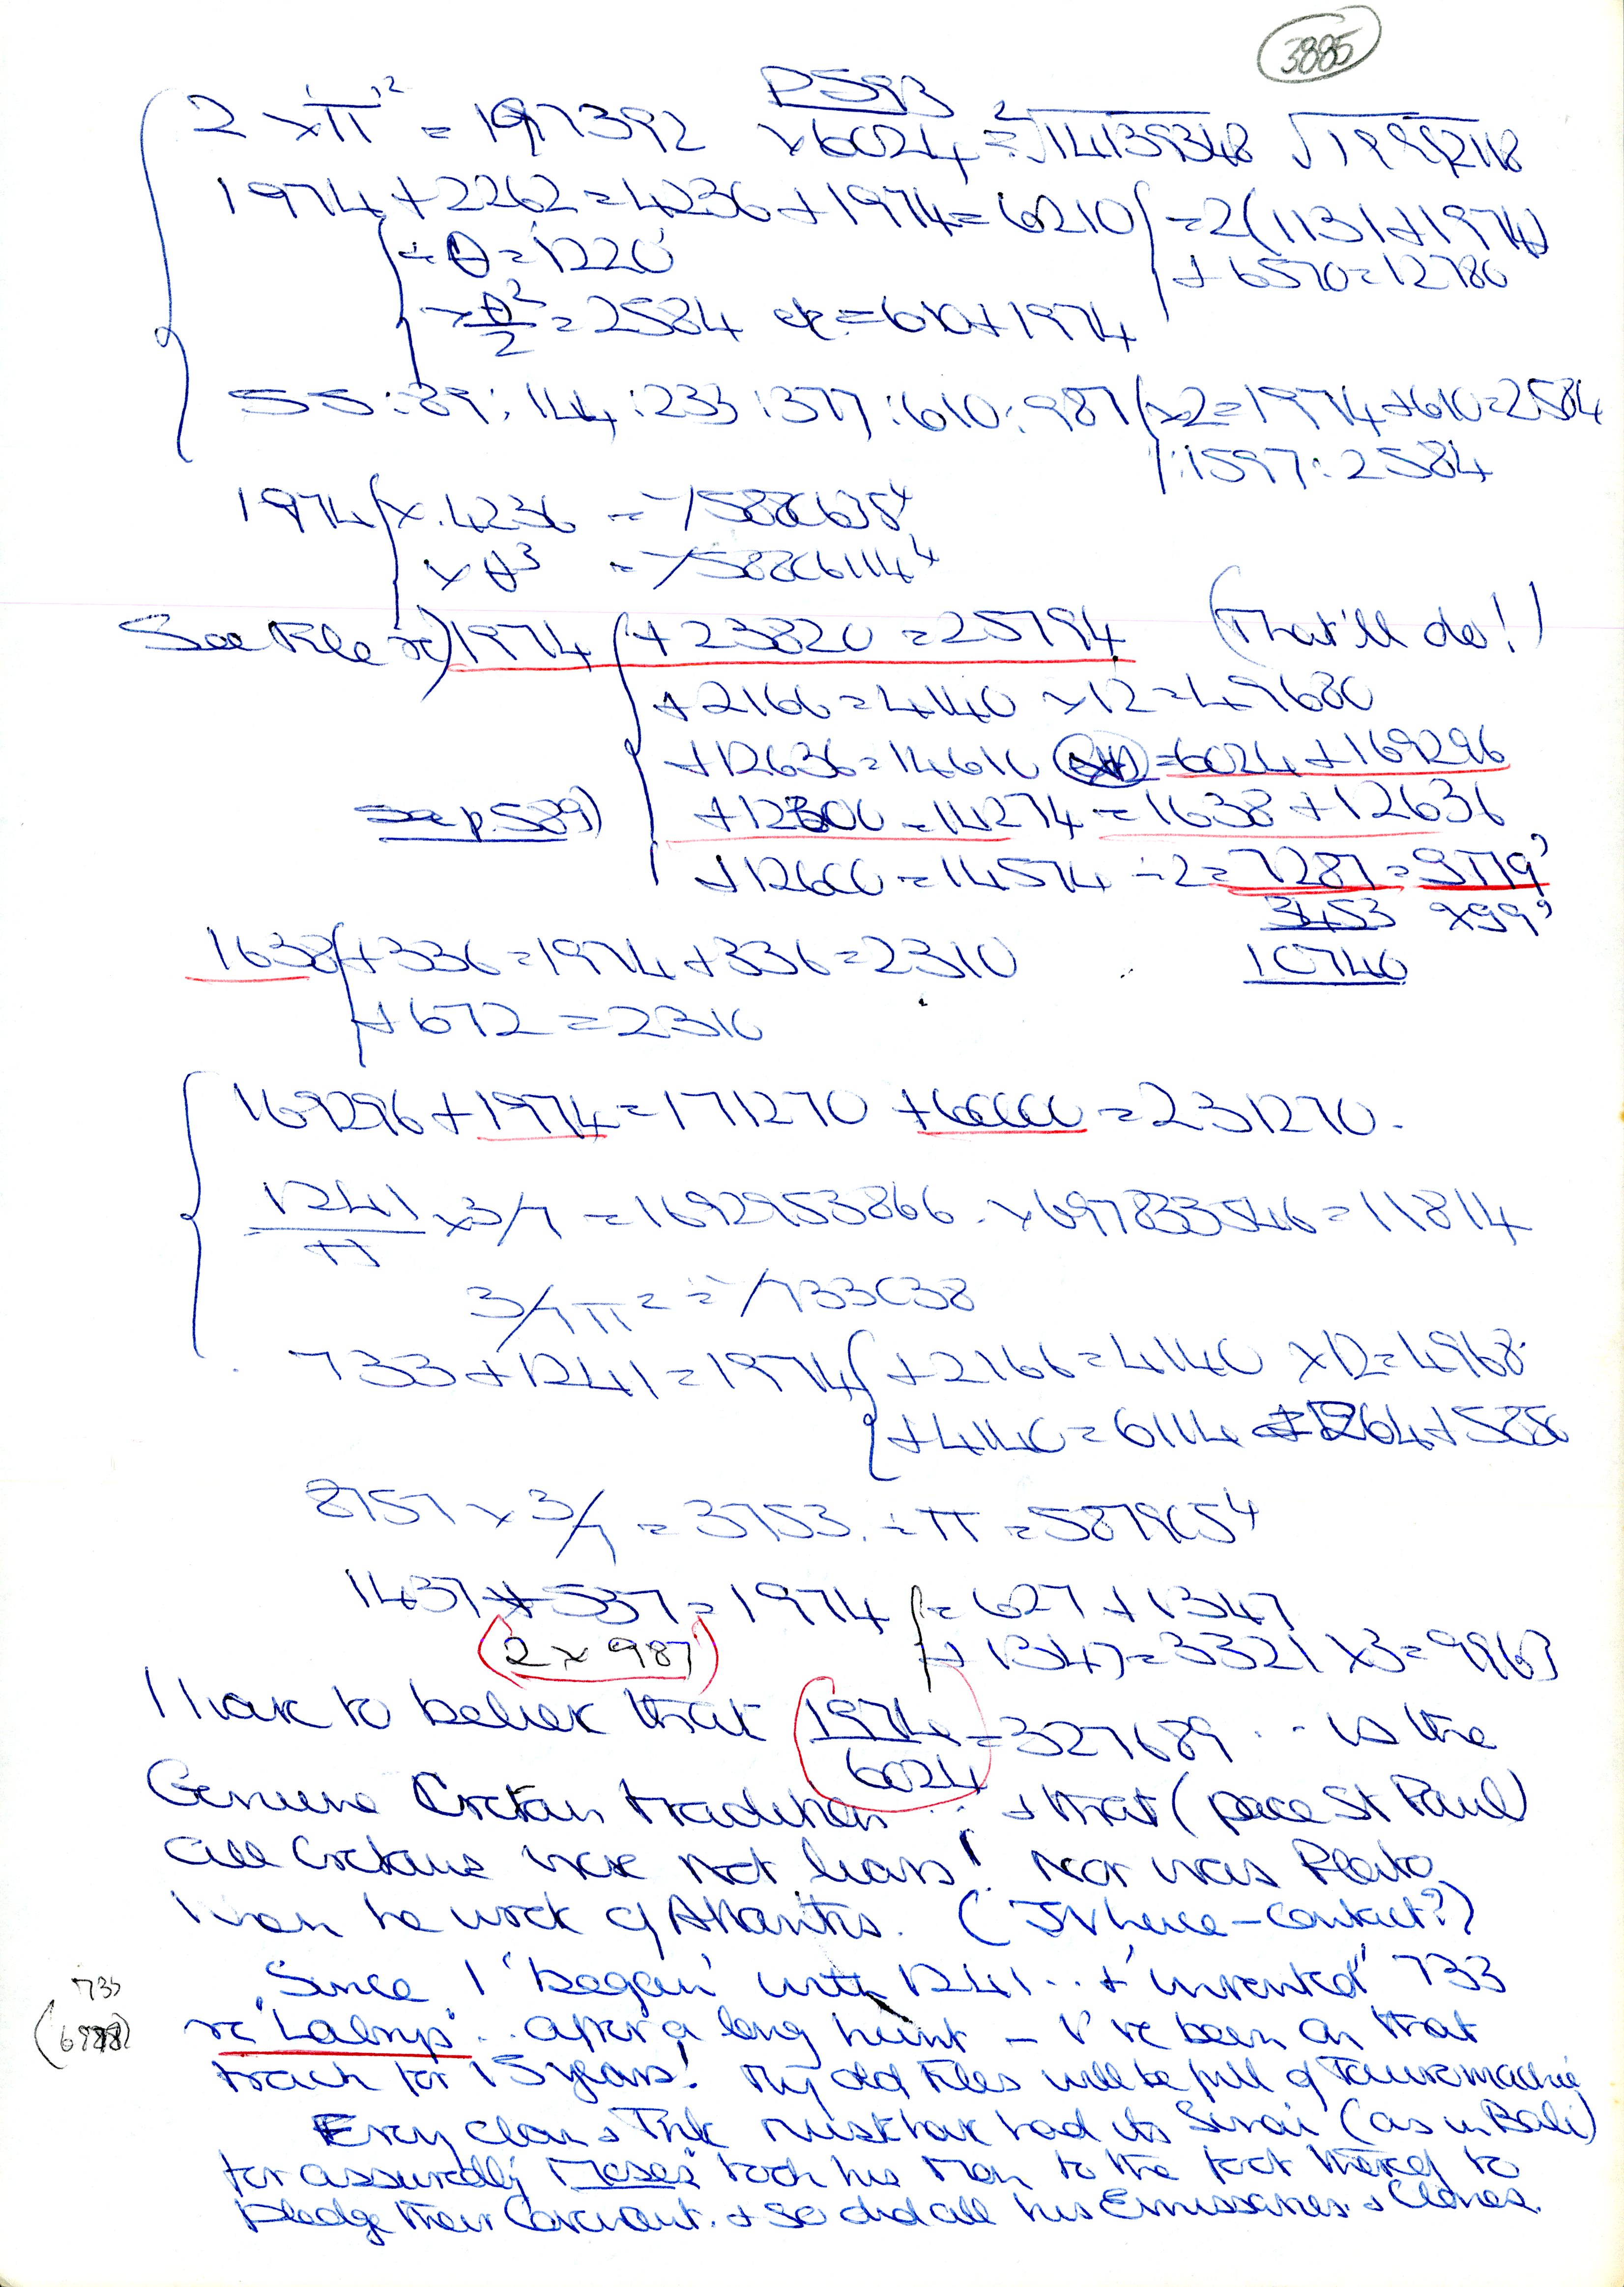 3885
P593
2 × π² = 197392 × 6024 = ²√14139348 √19992118
1974 + 2262 = 4236 + 1974 = 6210 = 2(1131 + 1974)
÷ θ = 1220 + 6570 = 12780
× θ²/2 = 2584 etc = 610 + 1974
55 : 89 : 144 : 233 : 377 : 610 : 987 (×2 = 1974 + 610 = 2584
: 1597 : 2584
1974 × .4236 =
× θ³ =
See File re) 1974 (+ 23820 = 25794 (That'll do!)
+ 2166 = 4140 × 12 = 49680
+ 12636 = 14610 = 6024 + 169296
see p.589) + 12300 = 14274 = 1638 + 12636
+ 12600 = 14574 ÷ 2 = 7287 = 9π19'
3453 × 99'
10740
1638 + 336 = 1974 + 336 = 2310
+ 672 = 2310
169296 + 1974 = 171270 + 60000 = 231270.
1241/π × 3/7 = 1692953866 . × 697833546 = 11814
3/7 π² = ÷ /733038
733 + 1241 = 1974 { + 2166 = 4140 × 12 = 4968.
+ 4140 = 6114
8757 × 3/7 = 3753. ÷ π =
1437 + 537 = 1974 { = 627 + 1347
(2 × 987) + 1347 = 3321 × 3 = 9963
I have to believe that 1974/6024 = 327689 . . is the
Genuine Cretan tradition .. + that (pace St Paul)
all Cretans were not liars! Nor was Plato
when he wrote of Atlantis. ( hence - contact?)
Since I 'began' with 1241 .. + 'invented' 733
733
re "Labrys" .. after a long hunt - I've been on that
track for 15 years! My old Files will be full of Tauromachie
Every clan & Tribe must have had its Sinai (as in Bali)
for assuredly "Moses" took his Men to the foot thereof to
pledge their Covenant. + so did all his Emissaries & Clones.